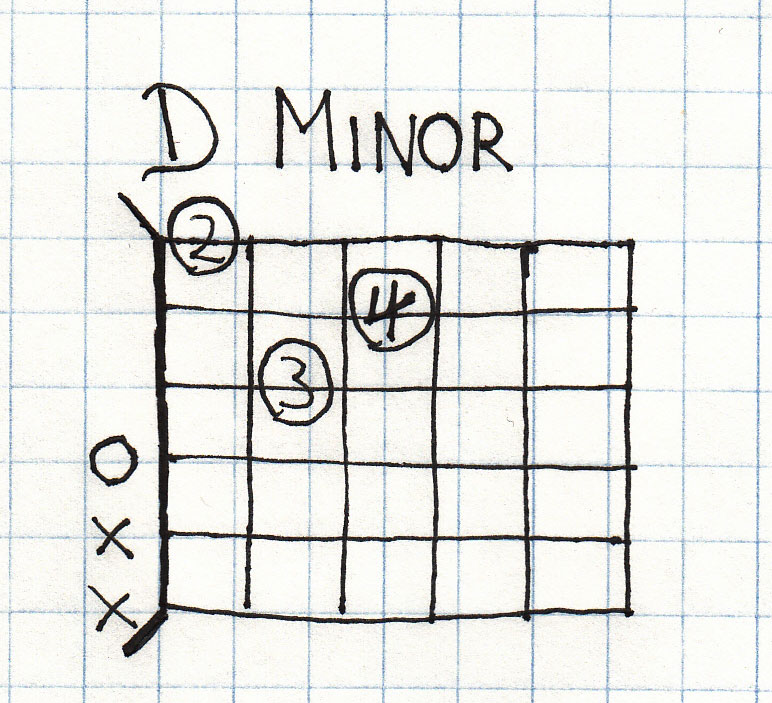 D MINOR
2
4
3
O
X
X